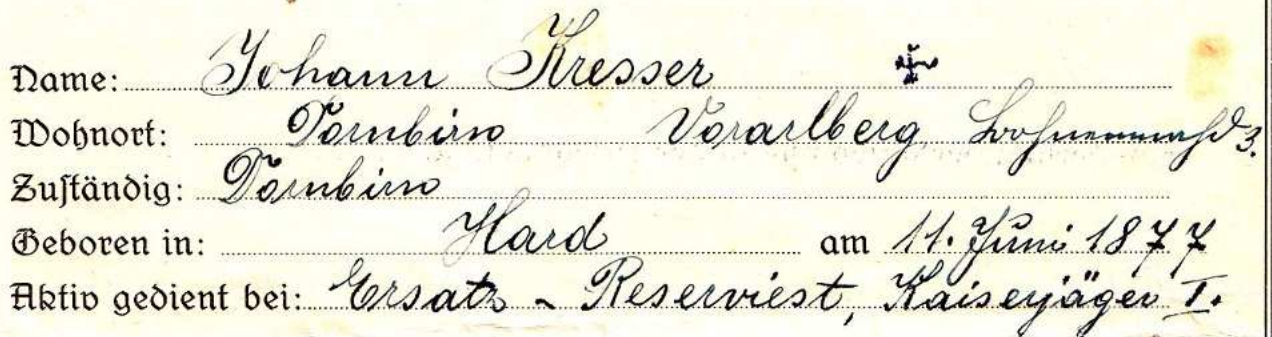 Name: Johann Kresser
Wohnort: Dornbirn Vorarlberg 3.
Zuständig: Dornbirn
Geboren in: Hard am 11. Juni 1877
Aktiv gedient bei: Ersatz - Reserviest, Kaiserjäger I.